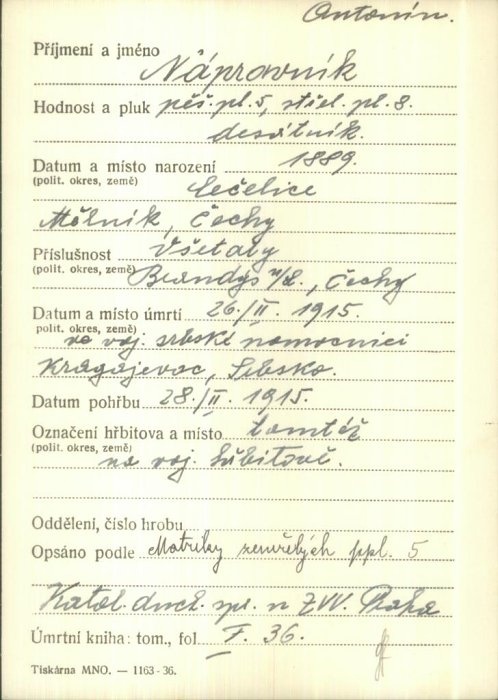 Antonín.
Příjmení a jméno Nápravník
Hodnost a pluk pěš. pl. 5, střel. pl. 8.
desátník.
Datum a místo narození 1889.
(polit. okres, země) Lečelice
Mělník, Čechy
Příslušnost Všetaty
(polit. okres, země) Brandýs n/L., Čechy
Datum a místo úmrtí 26./II. 1915.
(polit. okres, země) ve voj. srbské nemocnici
Kragujevac, Srbsko.
Datum pohřbu 28./II. 1915.
Označení hřbitova a místo tamtéž
(polit. okres, země) na voj. hřbitově.
Oddělení, číslo hrobu
Opsáno podle Matriky zemřelých ppl. 5
Katol. duch. spr. u ZVV. Praha
Úmrtní kniha: tom., fol. I. 36.
Tiskárna MNO. — 1163-36.